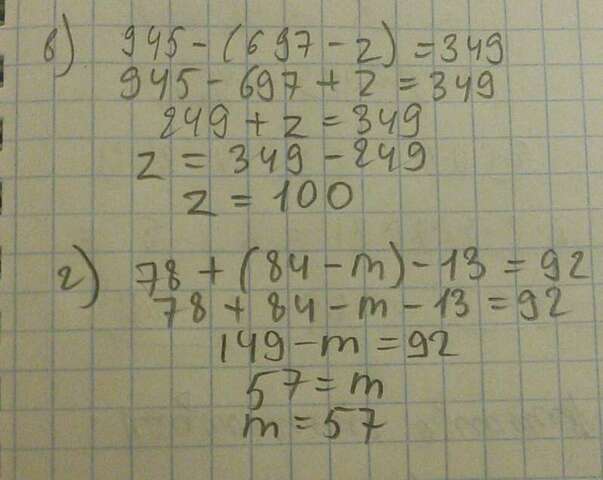 в) 945 - (697 - z) = 349
945 - 697 + z = 349
249 + z = 349
z = 349 - 249
z = 100
г) 78 + (84 - m) - 13 = 92
78 + 84 - m - 13 = 92
149 - m = 92
57 = m
m = 57